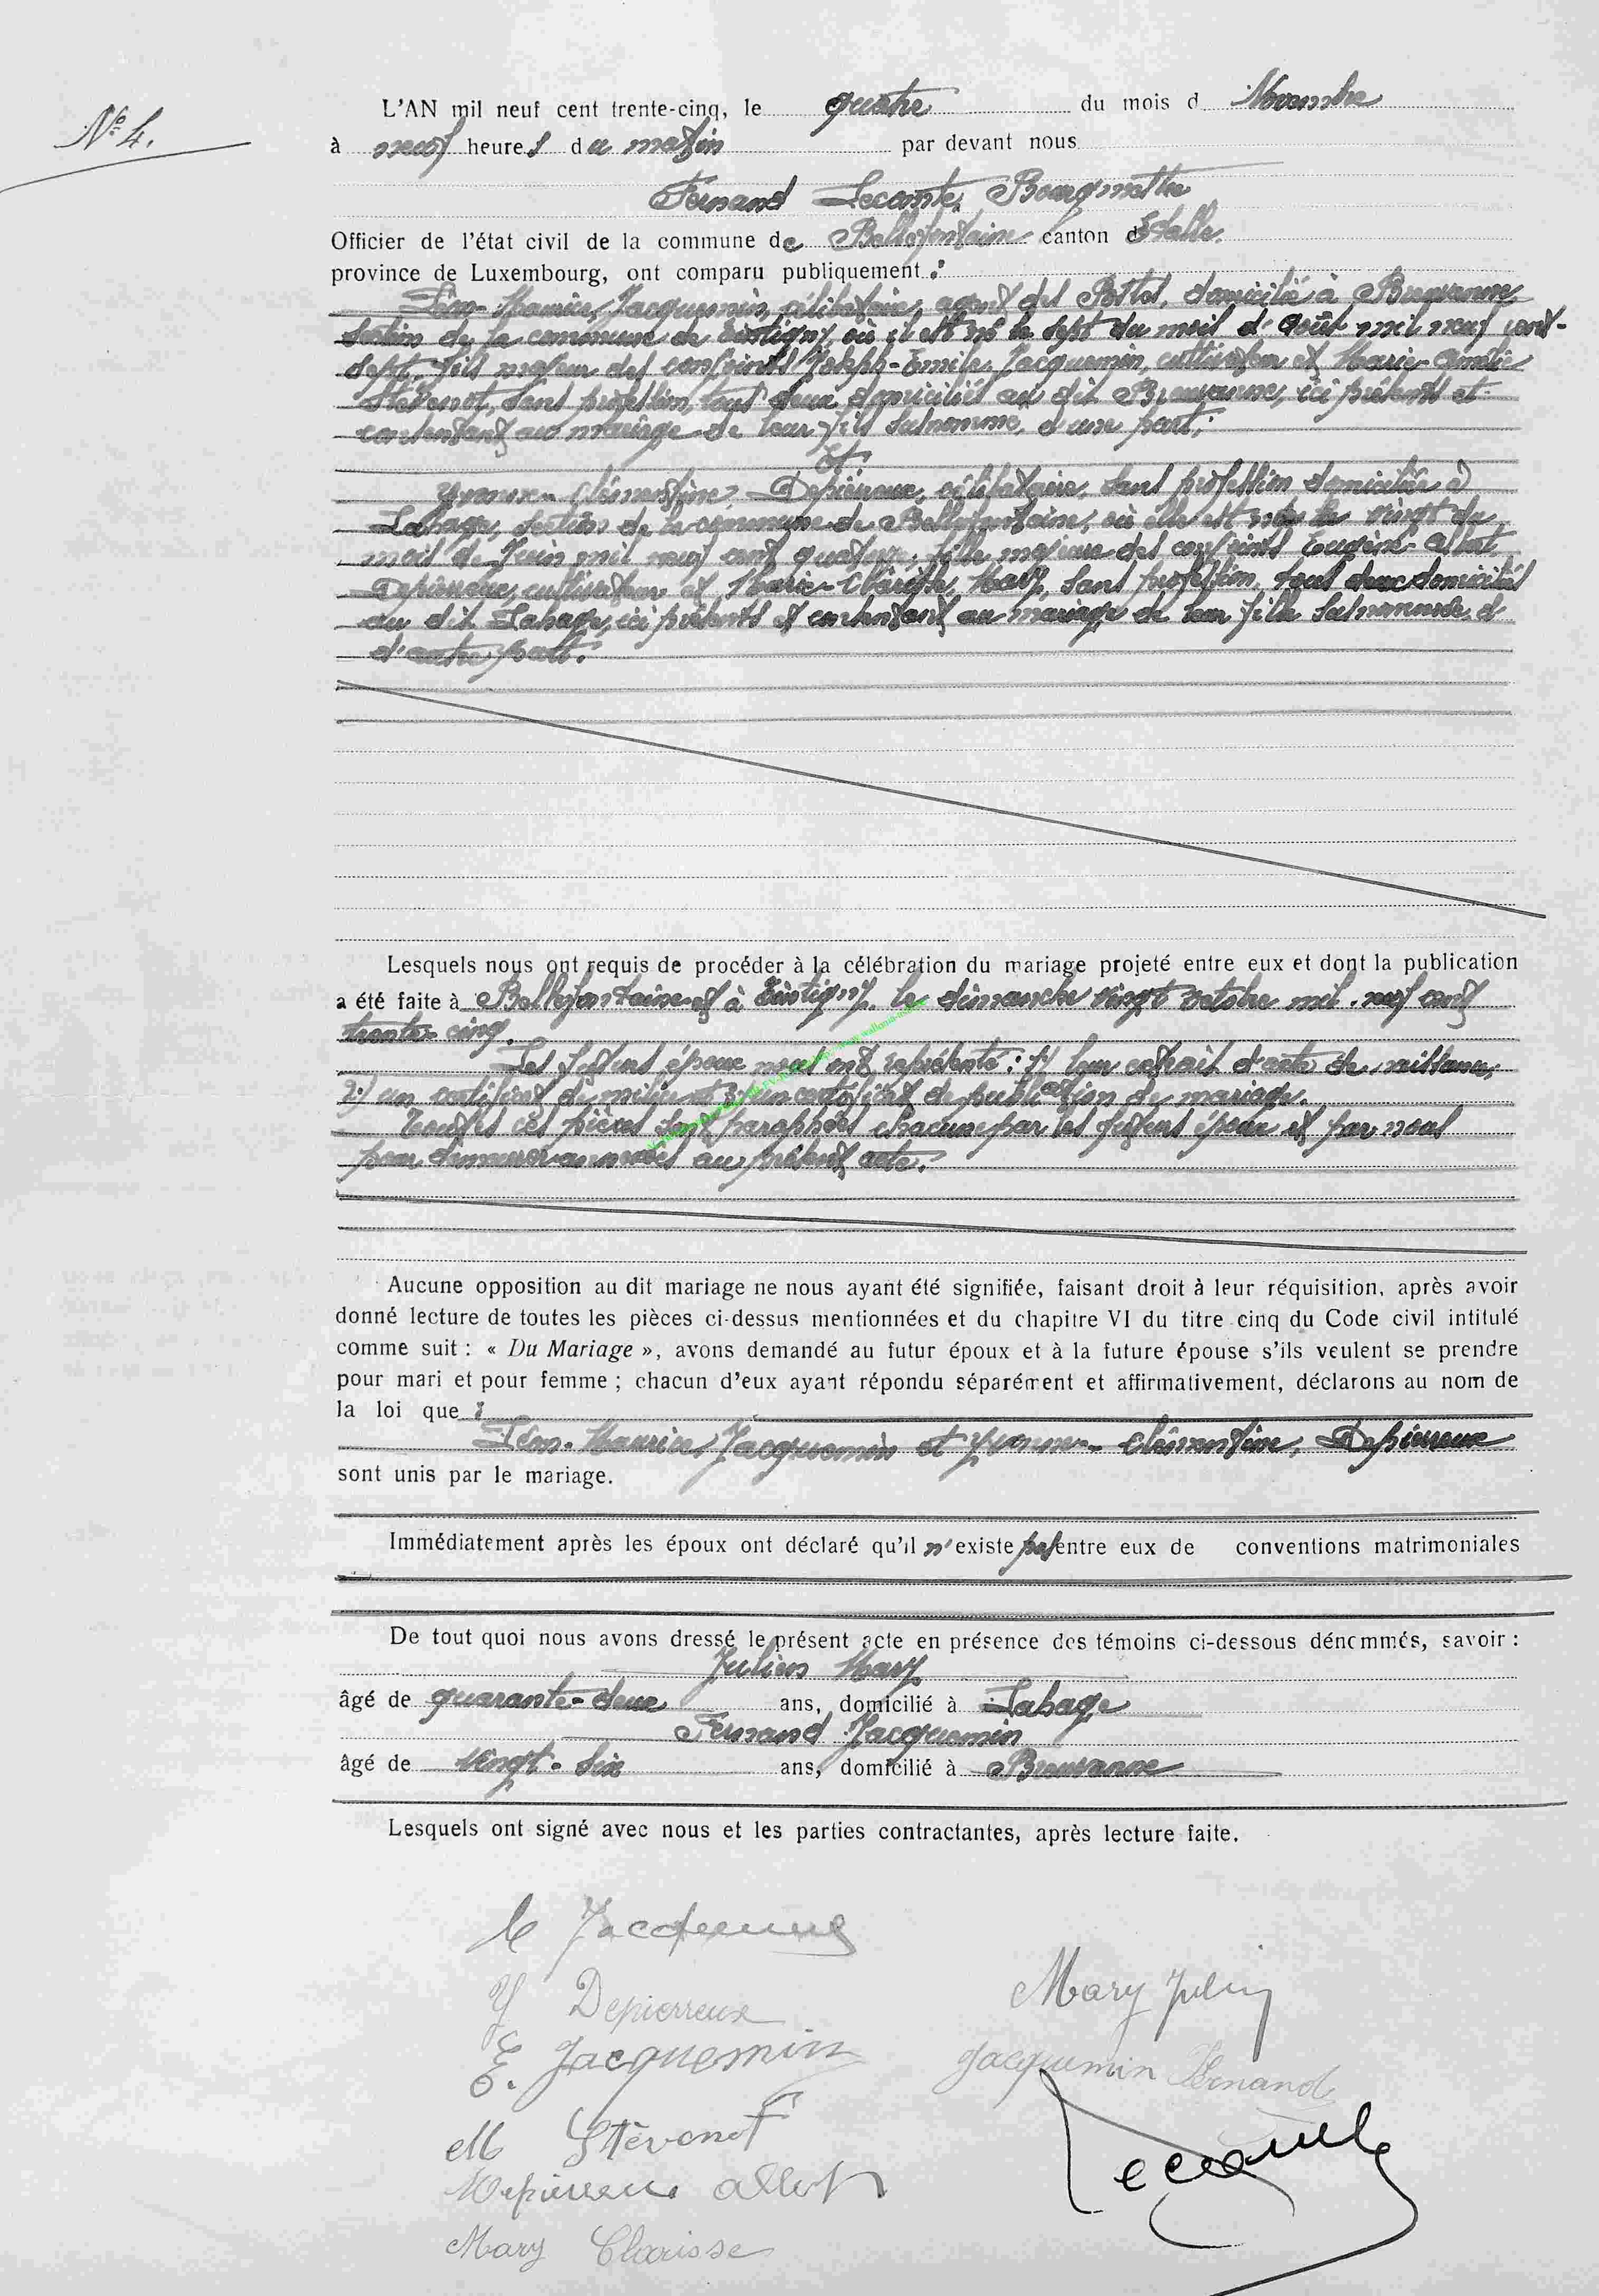 N° 4.
L'AN mil neuf cent trente-cinq, le quatre du mois d Novembre
à neuf heures du matin par devant nous
Fernand Lecomte, Bourgmestre
Officier de l'état civil de la commune de Bellefontaine canton d'Etalle.
province de Luxembourg, ont comparu publiquement :
Léon-Maurice, Jacquemin, célibataire, agent des Postes, domicilié à Breuvanne,
section de la commune de Tintigny, où il est né le sept du mois d'Août mil neuf cent-
sept, fils majeur des conjoints Joseph-Emile, Jacquemin, cultivateur et Marie-Amélie
Stévenot, sans profession, tous deux domiciliés au dit Breuvanne, ici présents et
consentant au mariage de leur fils susnommé, d'une part,
Et
Yvonne-Clémentine, Depierreux, célibataire, sans profession domiciliée à
Lahage, section de la commune de Bellefontaine, où elle est née le vingt du
mois de Juin mil neuf cent quatorze, fille majeure des conjoints Eugène-Albert
Depierreux, cultivateur et Marie-Clarisse, Mary, sans profession, tous deux domiciliés
au dit Lahage, ici présents et consentant au mariage de leur fille susnommée, d
d'autre part.
Lesquels nous ont requis de procéder à la célébration du mariage projeté entre eux et dont la publication
a été faite à Bellefontaine et à Tintigny, le dimanche vingt octobre mil neuf cent
trente-cinq.
Les futurs époux nous ont représenté : 1°) leur extrait d'acte de naissance,
2°) un certificat de milice et 3°) un certificat de publication de mariage.
Toutes ces pièces sont paraphées chacune par les futurs époux et par nous
pour demeurer annexées au présent acte.
Aucune opposition au dit mariage ne nous ayant été signifiée, faisant droit à leur réquisition, après avoir
donné lecture de toutes les pièces ci-dessus mentionnées et du chapitre VI du titre cinq du Code civil intitulé
comme suit : « Du Mariage », avons demandé au futur époux et à la future épouse s'ils veulent se prendre
pour mari et pour femme ; chacun d'eux ayant répondu séparément et affirmativement, déclarons au nom de
la loi que :
Léon-Maurice, Jacquemin et Yvonne-Clémentine, Depierreux
sont unis par le mariage.
Immédiatement après les époux ont déclaré qu'il n'existe pas entre eux de conventions matrimoniales
De tout quoi nous avons dressé le présent acte en présence des témoins ci-dessous dénommés, savoir :
Julien Mary
âgé de quarante-deux ans, domicilié à Lahage
Fernand Jacquemin
âgé de vingt-six ans, domicilié à Breuvanne
Lesquels ont signé avec nous et les parties contractantes, après lecture faite.
L Jacquemin
Y Depierreux
Mary Julien
E. Jacquemin
Jacquemin Fernand
M Stévenot
Lecomte
Depierreux Albert
Mary Clarisse